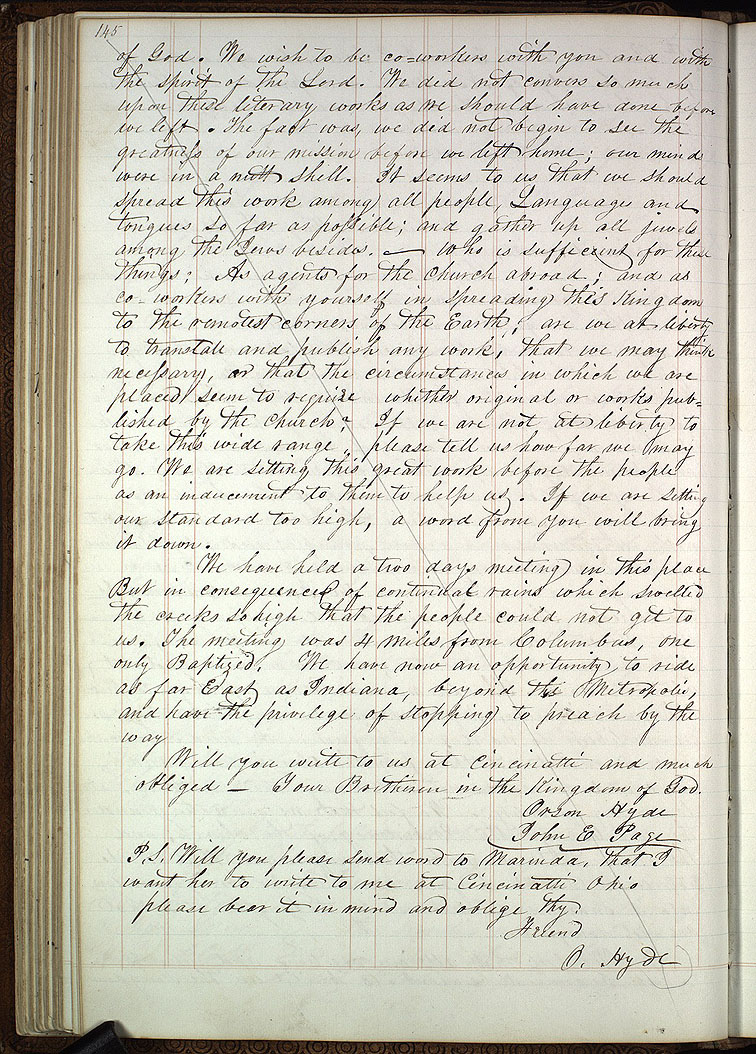 145
of God. We wish to be co-workers with you and with
the spirit of the Lord. We did not convers so much
upon these literary works as we should have done before
we left. The fact was, we did not begin to see the
greatness of our mission before we left home; our minds
were in a nutt shell. It seems to us that we should
spread this work among all people, Languages and
tongues so far as possible; and gather up all jewels
among the Jews besides. — Who is sufficient for these
things; As agents for the church abroad; and as
co-workers with yourself in spreading this Kingdom
to the remotest corners of the Earth; are we at liberty
to translate and publish any work, that we may think
necessary, or that the circumstances in which we are
placed seem to require whether original or works pub=
lished by the church? If we are not at liberty to
take this wide range, please tell us how far we may
go. We are setting this great work before the people
as an inducement to them to help us. If we are setting
our standard too high, a word from you will bring
it down.
We have held a two days meeting in this place
But in consequence of continual rains which swelled
the creeks so high that the people could not get to
us. The meeting was 4 miles from Columbus, one
only Baptized. We have now an opportunity to ride
as far East as Indiana, beyond the Metropolis,
and have the privilege of stopping to preach by the
way
Will you write to us at Cincinatti and much
obliged — Your Bretheren in the Kingdom of God.
Orson Hyde
John E Page
P.S. Will you please send word to Marinda, that I
want her to write to me at Cincinatti Ohio
please bear it in mind and oblige thy.
Friend
O. Hyde